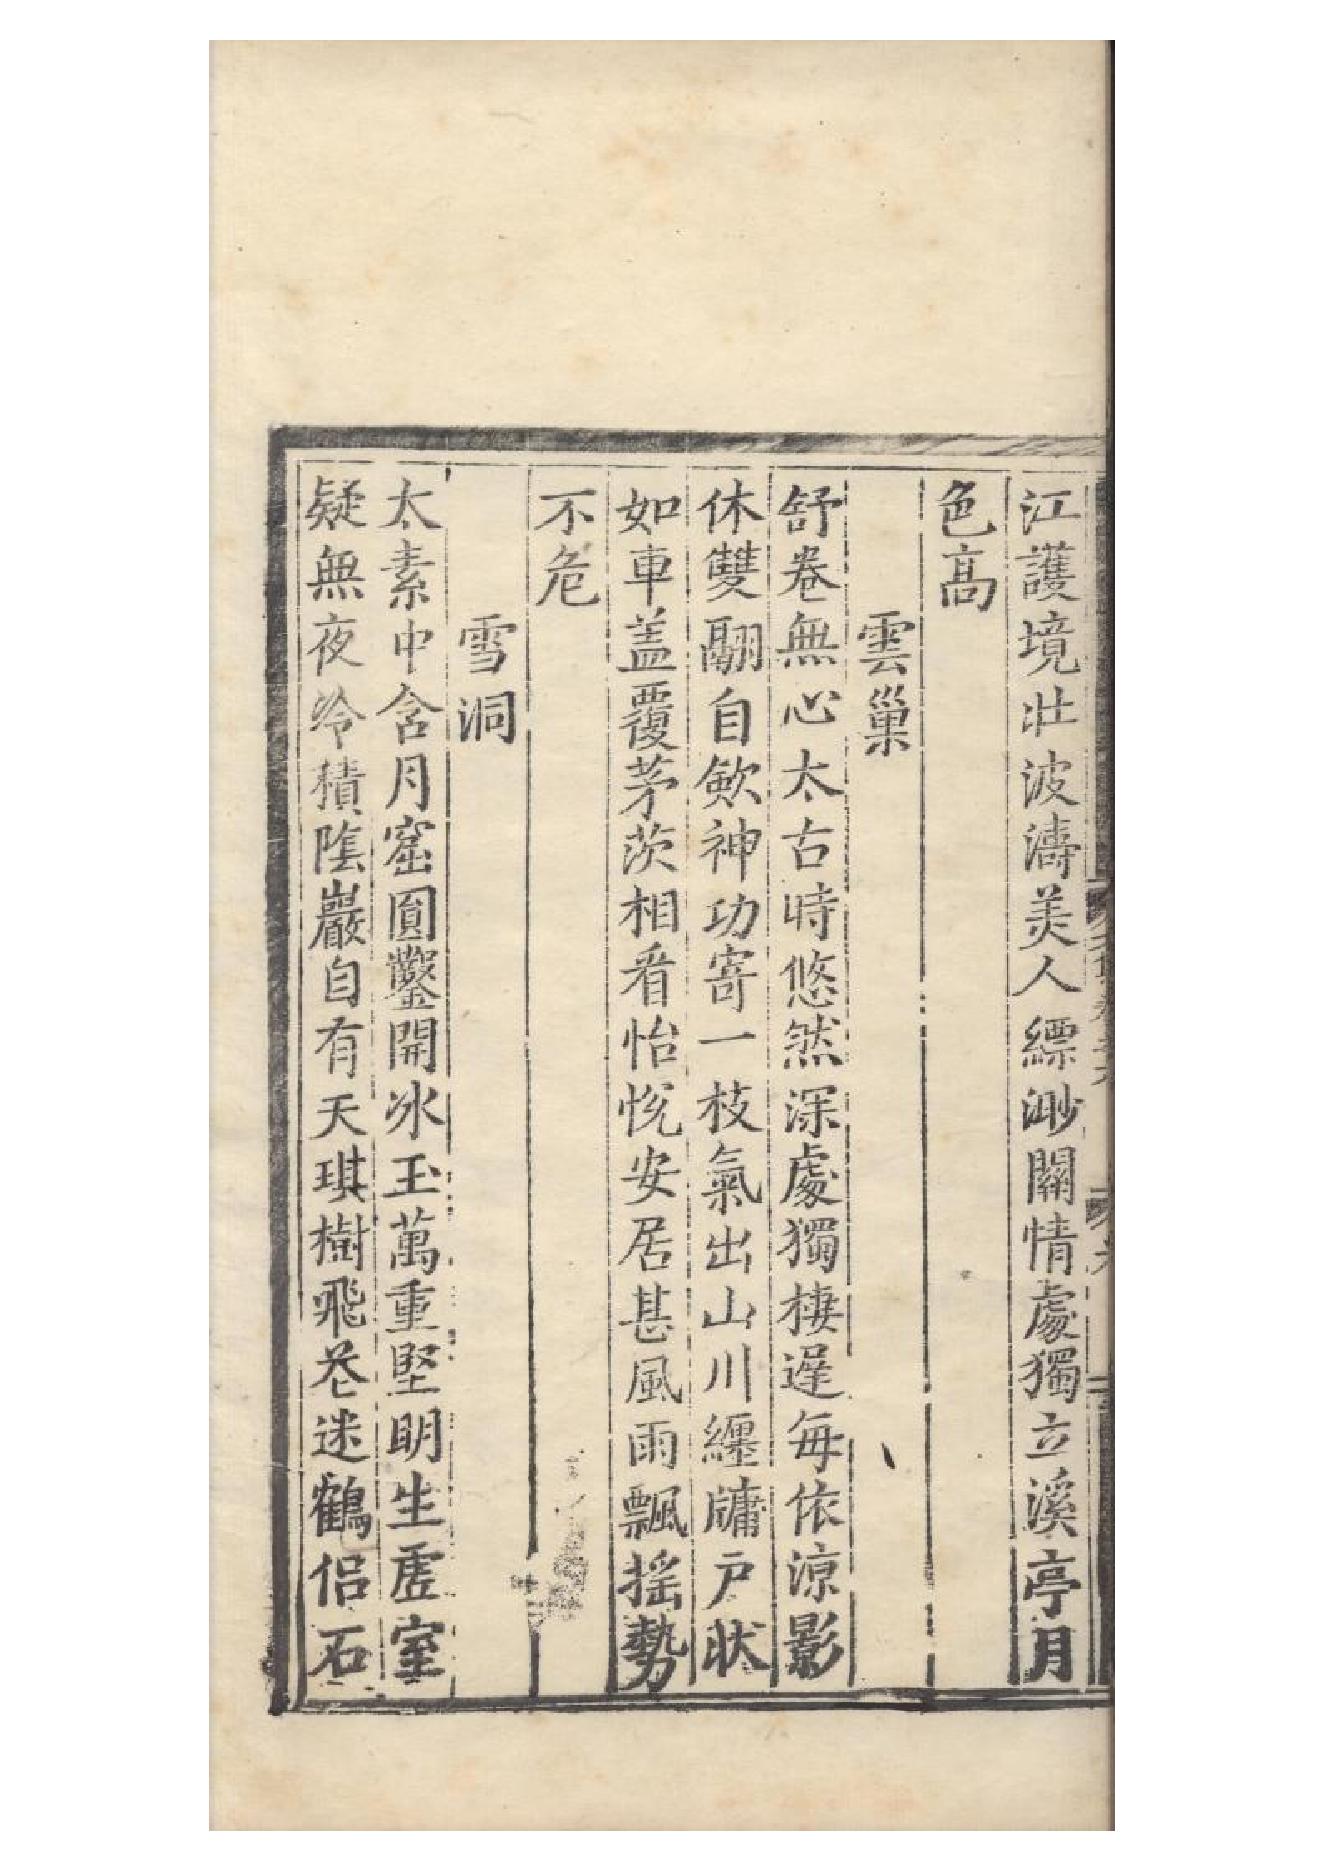 江護境壯波濤美人縹渺關情處獨立溪亭月
色高
雲巢
舒卷無心太古時悠然深處獨棲遲每依涼影
休雙翮自歛神功寄一枝氣出山川纏牖戸狀
如車盖覆茅茨相看怡悅安居甚風雨飄搖勢
不危
雪洞
太素中含月窟圓鑿開冰玉萬重堅明生虛室
疑無夜冷積隂巖自有天琪樹飛花迷鶴侶石